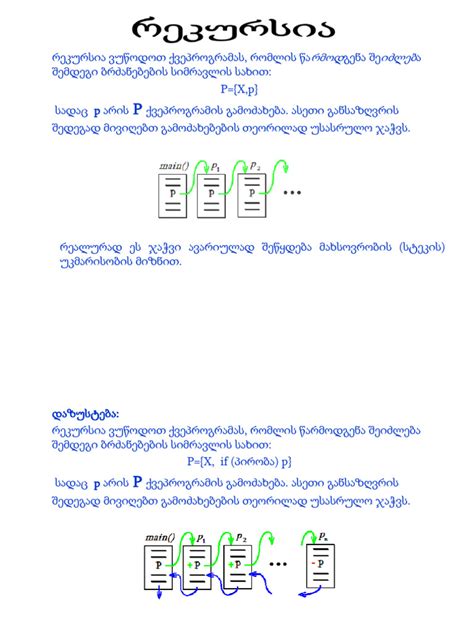 რეკურსია
რეკურსია ვუწოდოთ ქვეპროგრამას, რომლის წარმოდგენა შეიძლება
შემდეგი ბრძანებების სიმრავლის სახით:
P={X,p}
სადაც p არის P ქვეპროგრამის გამოძახება. ასეთი განსაზღვრის
შედეგად მივიღებთ გამოძახებების თეორილად უსასრულო ჯაჭვს.
main() p1 p2
P P P ...
რეალურად ეს ჯაჭვი ავარიულად შეწყდება მახსოვრობის (სტეკის)
უკმარისობის მიზნით.
დაზუსტება:
რეკურსია ვუწოდოთ ქვეპროგრამას, რომლის წარმოდგენა შეიძლება
შემდეგი ბრძანებების სიმრავლის სახით:
P={X, if (პირობა) p}
სადაც p არის P ქვეპროგრამის გამოძახება. ასეთი განსაზღვრის
შედეგად მივიღებთ გამოძახებების თეორილად უსასრულო ჯაჭვს.
main() p1 p2 pn
P +P +P ... -P